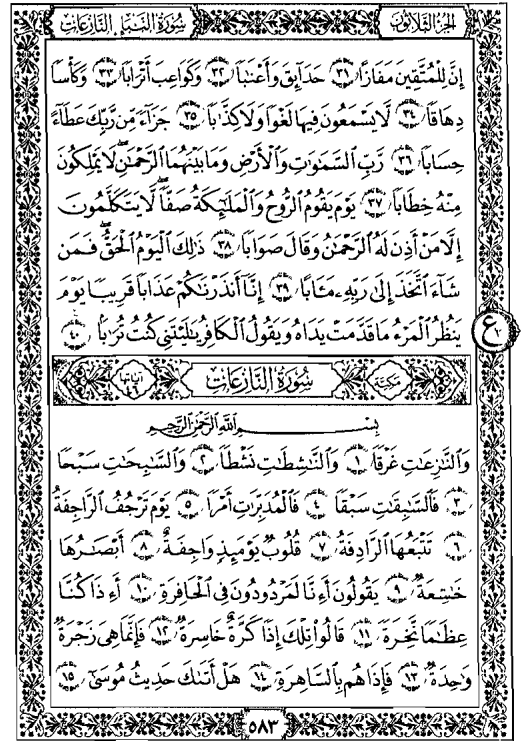 الجزء الثلاثون سورة النبإ ، النازعات
إِنَّ لِلْمُتَّقِينَ مَفَازًا ٣١ حَدَآئِقَ وَأَعْنَٰبًا ٣٢ وَكَوَاعِبَ أَتْرَابًا ٣٣ وَكَأْسًا
دِهَاقًا ٣٤ لَّا يَسْمَعُونَ فِيهَا لَغْوًا وَلَا كِذَّٰبًا ٣٥ جَزَآءً مِّن رَّبِّكَ عَطَآءً
حِسَابًا ٣٦ رَّبِّ ٱلسَّمَٰوَٰتِ وَٱلْأَرْضِ وَمَا بَيْنَهُمَا ٱلرَّحْمَٰنِ ۖ لَا يَمْلِكُونَ
مِنْهُ خِطَابًا ٣٧ يَوْمَ يَقُومُ ٱلرُّوحُ وَٱلْمَلَٰٓئِكَةُ صَفًّا ۖ لَّا يَتَكَلَّمُونَ
إِلَّا مَنْ أَذِنَ لَهُ ٱلرَّحْمَٰنُ وَقَالَ صَوَابًا ٣٨ ذَٰلِكَ ٱلْيَوْمُ ٱلْحَقُّ ۖ فَمَن
شَآءَ ٱتَّخَذَ إِلَىٰ رَبِّهِۦ مَـَٔابًا ٣٩ إِنَّآ أَنذَرْنَٰكُمْ عَذَابًا قَرِيبًا يَوْمَ
يَنظُرُ ٱلْمَرْءُ مَا قَدَّمَتْ يَدَاهُ وَيَقُولُ ٱلْكَافِرُ يَٰلَيْتَنِى كُنتُ تُرَٰبًا ٤٠
ع
مكية سورة النازعات آياتها ٤٦
بِسْمِ ٱللَّهِ ٱلرَّحْمَٰنِ ٱلرَّحِيمِ
وَٱلنَّٰزِعَٰتِ غَرْقًا ١ وَٱلنَّٰشِطَٰتِ نَشْطًا ٢ وَٱلسَّٰبِحَٰتِ سَبْحًا
٣ فَٱلسَّٰبِقَٰتِ سَبْقًا ٤ فَٱلْمُدَبِّرَٰتِ أَمْرًا ٥ يَوْمَ تَرْجُفُ ٱلرَّاجِفَةُ
٦ تَتْبَعُهَا ٱلرَّادِفَةُ ٧ قُلُوبٌ يَوْمَئِذٍ وَاجِفَةٌ ٨ أَبْصَٰرُهَا
خَٰشِعَةٌ ٩ يَقُولُونَ أَءِنَّا لَمَرْدُودُونَ فِى ٱلْحَافِرَةِ ١٠ أَءِذَا كُنَّا
عِظَٰمًا نَّخِرَةً ١١ قَالُوا۟ تِلْكَ إِذًا كَرَّةٌ خَاسِرَةٌ ١٢ فَإِنَّمَا هِىَ زَجْرَةٌ
وَٰحِدَةٌ ١٣ فَإِذَا هُم بِٱلسَّاهِرَةِ ١٤ هَلْ أَتَىٰكَ حَدِيثُ مُوسَىٰٓ ١٥
٥٨٣